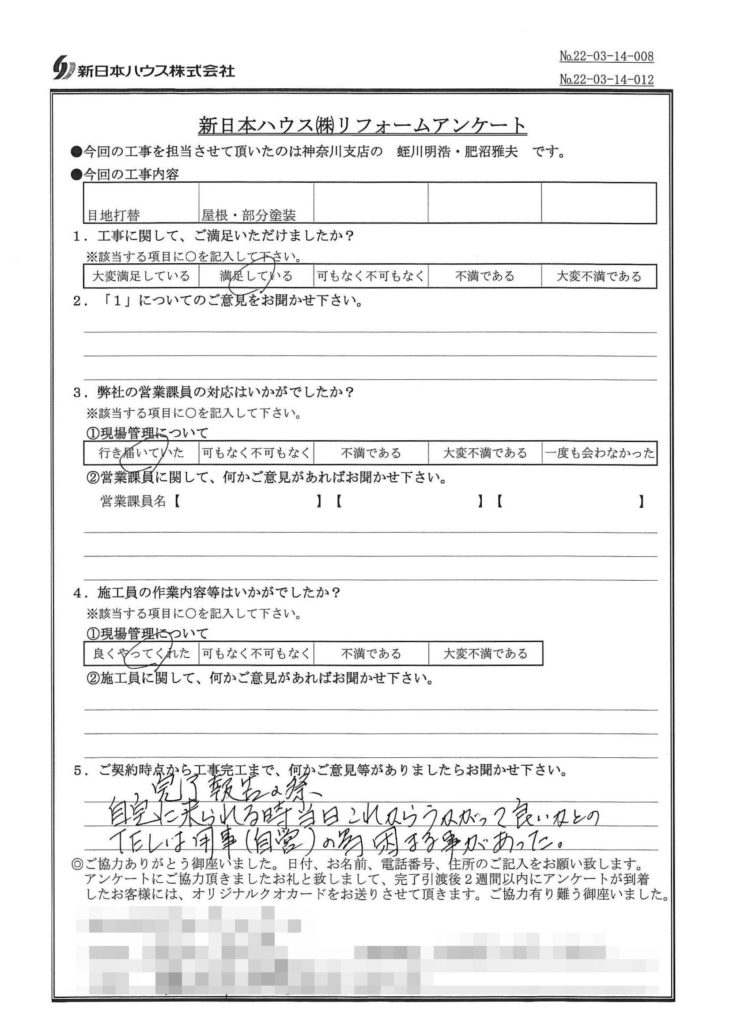 新日本ハウス株式会社
№22-03-14-008
№22-03-14-012
新日本ハウス㈱リフォームアンケート
●今回の工事を担当させて頂いたのは神奈川支店の 蛭川明浩・肥沼雅夫 です。
●今回の工事内容
目地打替 屋根・部分塗装
1．工事に関して、ご満足いただけましたか？
※該当する項目に○を記入して下さい。
大変満足している 満足している 可もなく不可もなく 不満である 大変不満である
2．「1」についてのご意見をお聞かせ下さい。
3．弊社の営業課員の対応はいかがでしたか？
※該当する項目に○を記入して下さい。
①現場管理について
行き届いていた 可もなく不可もなく 不満である 大変不満である 一度も会わなかった
②営業課員に関して、何かご意見があればお聞かせ下さい。
営業課員名【 】【 】【 】
4．施工員の作業内容等はいかがでしたか？
※該当する項目に○を記入して下さい。
①現場管理について
良くやってくれた 可もなく不可もなく 不満である 大変不満である
②施工員に関して、何かご意見があればお聞かせ下さい。
5．ご契約時点から工事完工まで、何かご意見等がありましたらお聞かせ下さい。
完了報告の祭、
自宅に来られる時当日これからうかがって良いかとの
TELは用事(自営)の為困まる事があった。
◎ご協力ありがとう御座いました。日付、お名前、電話番号、住所のご記入をお願い致します。
アンケートにご協力頂きましたお礼と致しまして、完了引渡後2週間以内にアンケートが到着
したお客様には、オリジナルクオカードをお送りさせて頂きます。ご協力有り難う御座いました。